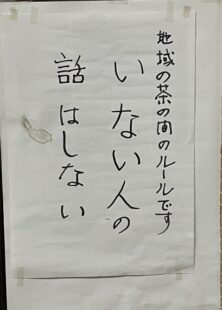 地域の茶の間のルールです
いない人の
話はしない